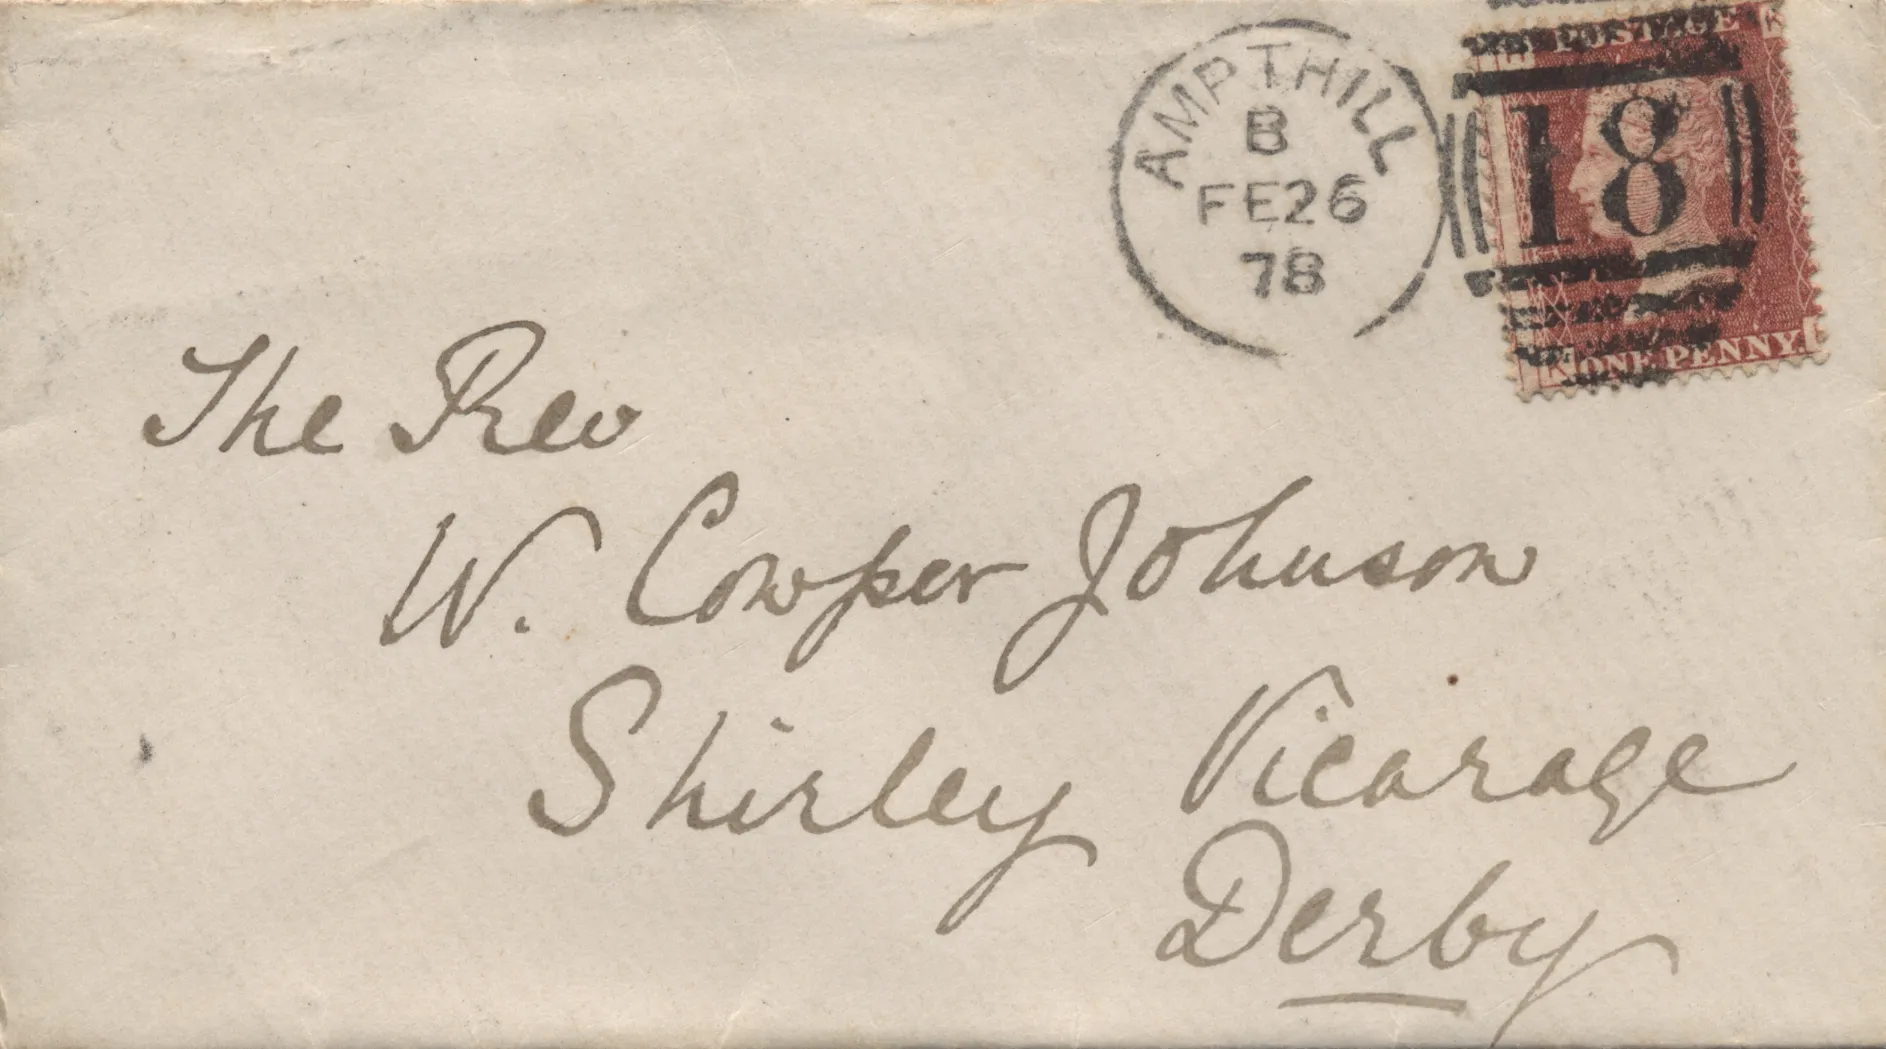 AMPTHILL
B
FE26
78
POSTAGE
K
18
K
ONE PENNY
The Rev
W. Cowper Johnson
Shirley Vicarage
Derby